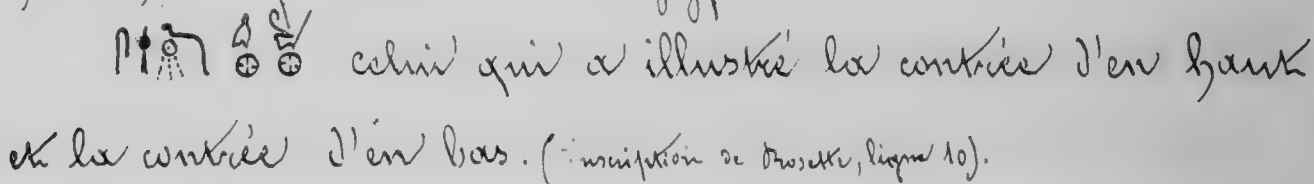 celui qui a illustré la contrée d'en haut
et la contrée d'en bas. (inscription de Rosette, ligne 10).